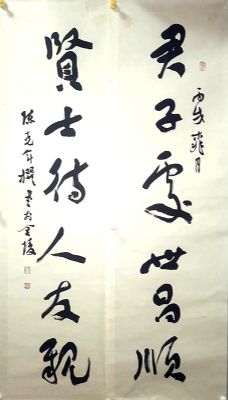 君子處世昌順
丙戌 月
賢士待人友親
陳克年撰書於金陵